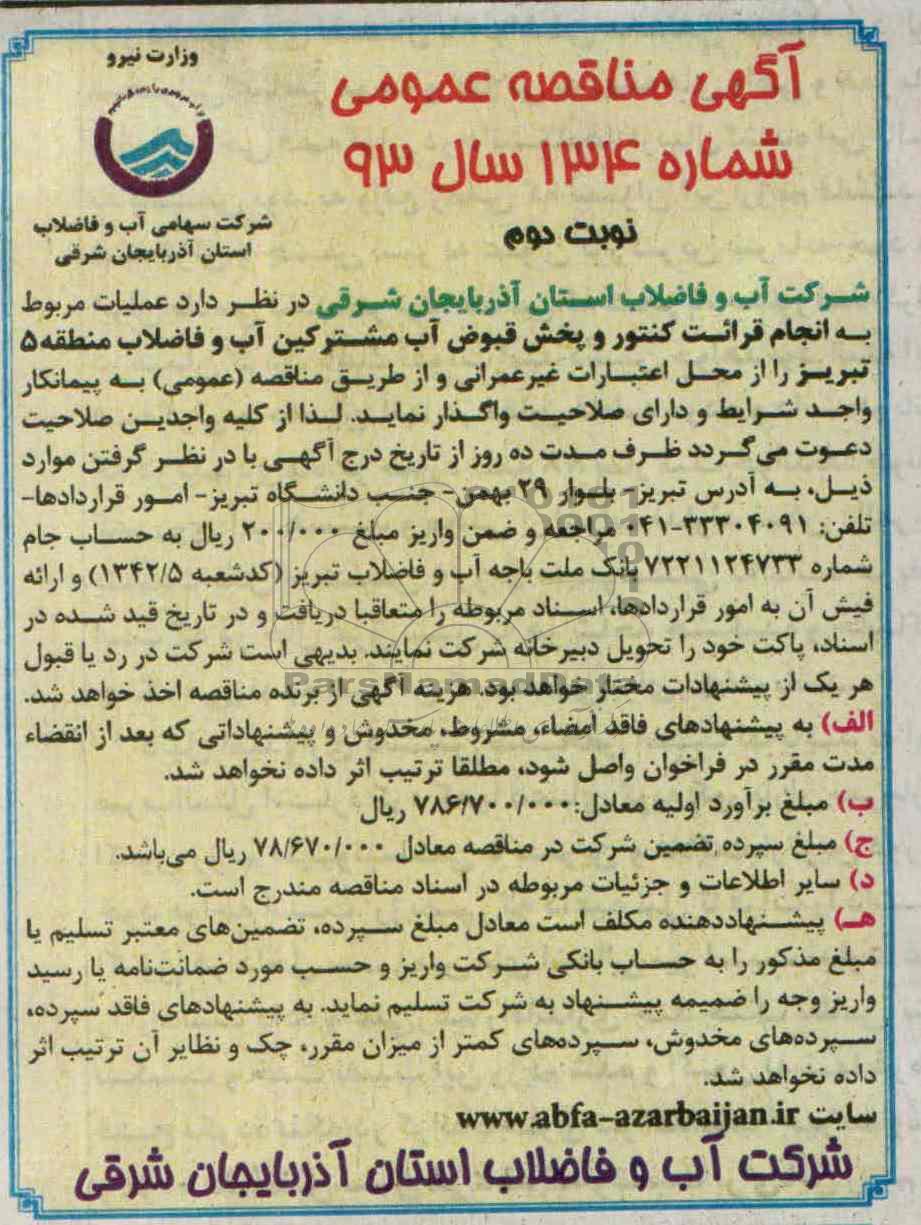 وزارت نیرو
آگهی مناقصه عمومی
شماره ۱۳۴ سال ۹۳
نوبت دوم
شرکت سهامی آب و فاضلاب
استان آذربایجان شرقی
شرکت آب و فاضلاب استان آذربایجان شرقی در نظر دارد عملیات مربوط
به انجام قرائت کنتور و پخش قبوض آب مشترکین آب و فاضلاب منطقه ۵
تبریز را از محل اعتبارات غیرعمرانی و از طریق مناقصه (عمومی) به پیمانکار
واجد شرایط و دارای صلاحیت واگذار نماید. لذا از کلیه واجدین صلاحیت
دعوت می‌گردد ظرف مدت ده روز از تاریخ درج آگهی با در نظر گرفتن موارد
ذیل، به آدرس تبریز- بلوار ۲۹ بهمن- جنب دانشگاه تبریز- امور قراردادها-
تلفن: ۳۳۳۰۴۰۹۱-۰۴۱ مراجعه و ضمن واریز مبلغ ۲۰۰/۰۰۰ ریال به حساب جام
شماره ۷۲۲۱۱۲۴۷۳۳ بانک ملت باجه آب و فاضلاب تبریز (کدشعبه ۱۳۴۲/۵) و ارائه
فیش آن به امور قراردادها، اسناد مربوطه را متعاقبا دریافت و در تاریخ قید شده در
اسناد، پاکت خود را تحویل دبیرخانه شرکت نمایند. بدیهی است شرکت در رد یا قبول
هر یک از پیشنهادات مختار خواهد بود. هزینه آگهی از برنده مناقصه اخذ خواهد شد.
الف) به پیشنهادهای فاقد امضاء، مشروط، مخدوش و پیشنهاداتی که بعد از انقضاء
مدت مقرر در فراخوان واصل شود، مطلقا ترتیب اثر داده نخواهد شد.
ب) مبلغ برآورد اولیه معادل: ۷۸۶/۷۰۰/۰۰۰ ریال
ج) مبلغ سپرده تضمین شرکت در مناقصه معادل ۷۸/۶۷۰/۰۰۰ ریال می‌باشد.
د) سایر اطلاعات و جزئیات مربوطه در اسناد مناقصه مندرج است.
هـ) پیشنهاددهنده مکلف است معادل مبلغ سپرده، تضمین‌های معتبر تسلیم یا
مبلغ مذکور را به حساب بانکی شرکت واریز و حسب مورد ضمانت‌نامه یا رسید
واریز وجه را ضمیمه پیشنهاد به شرکت تسلیم نماید. به پیشنهادهای فاقد سپرده،
سپرده‌های مخدوش، سپرده‌های کمتر از میزان مقرر، چک و نظایر آن ترتیب اثر
داده نخواهد شد.
سایت www.abfa-azarbaijan.ir
شرکت آب و فاضلاب استان آذربایجان شرقی